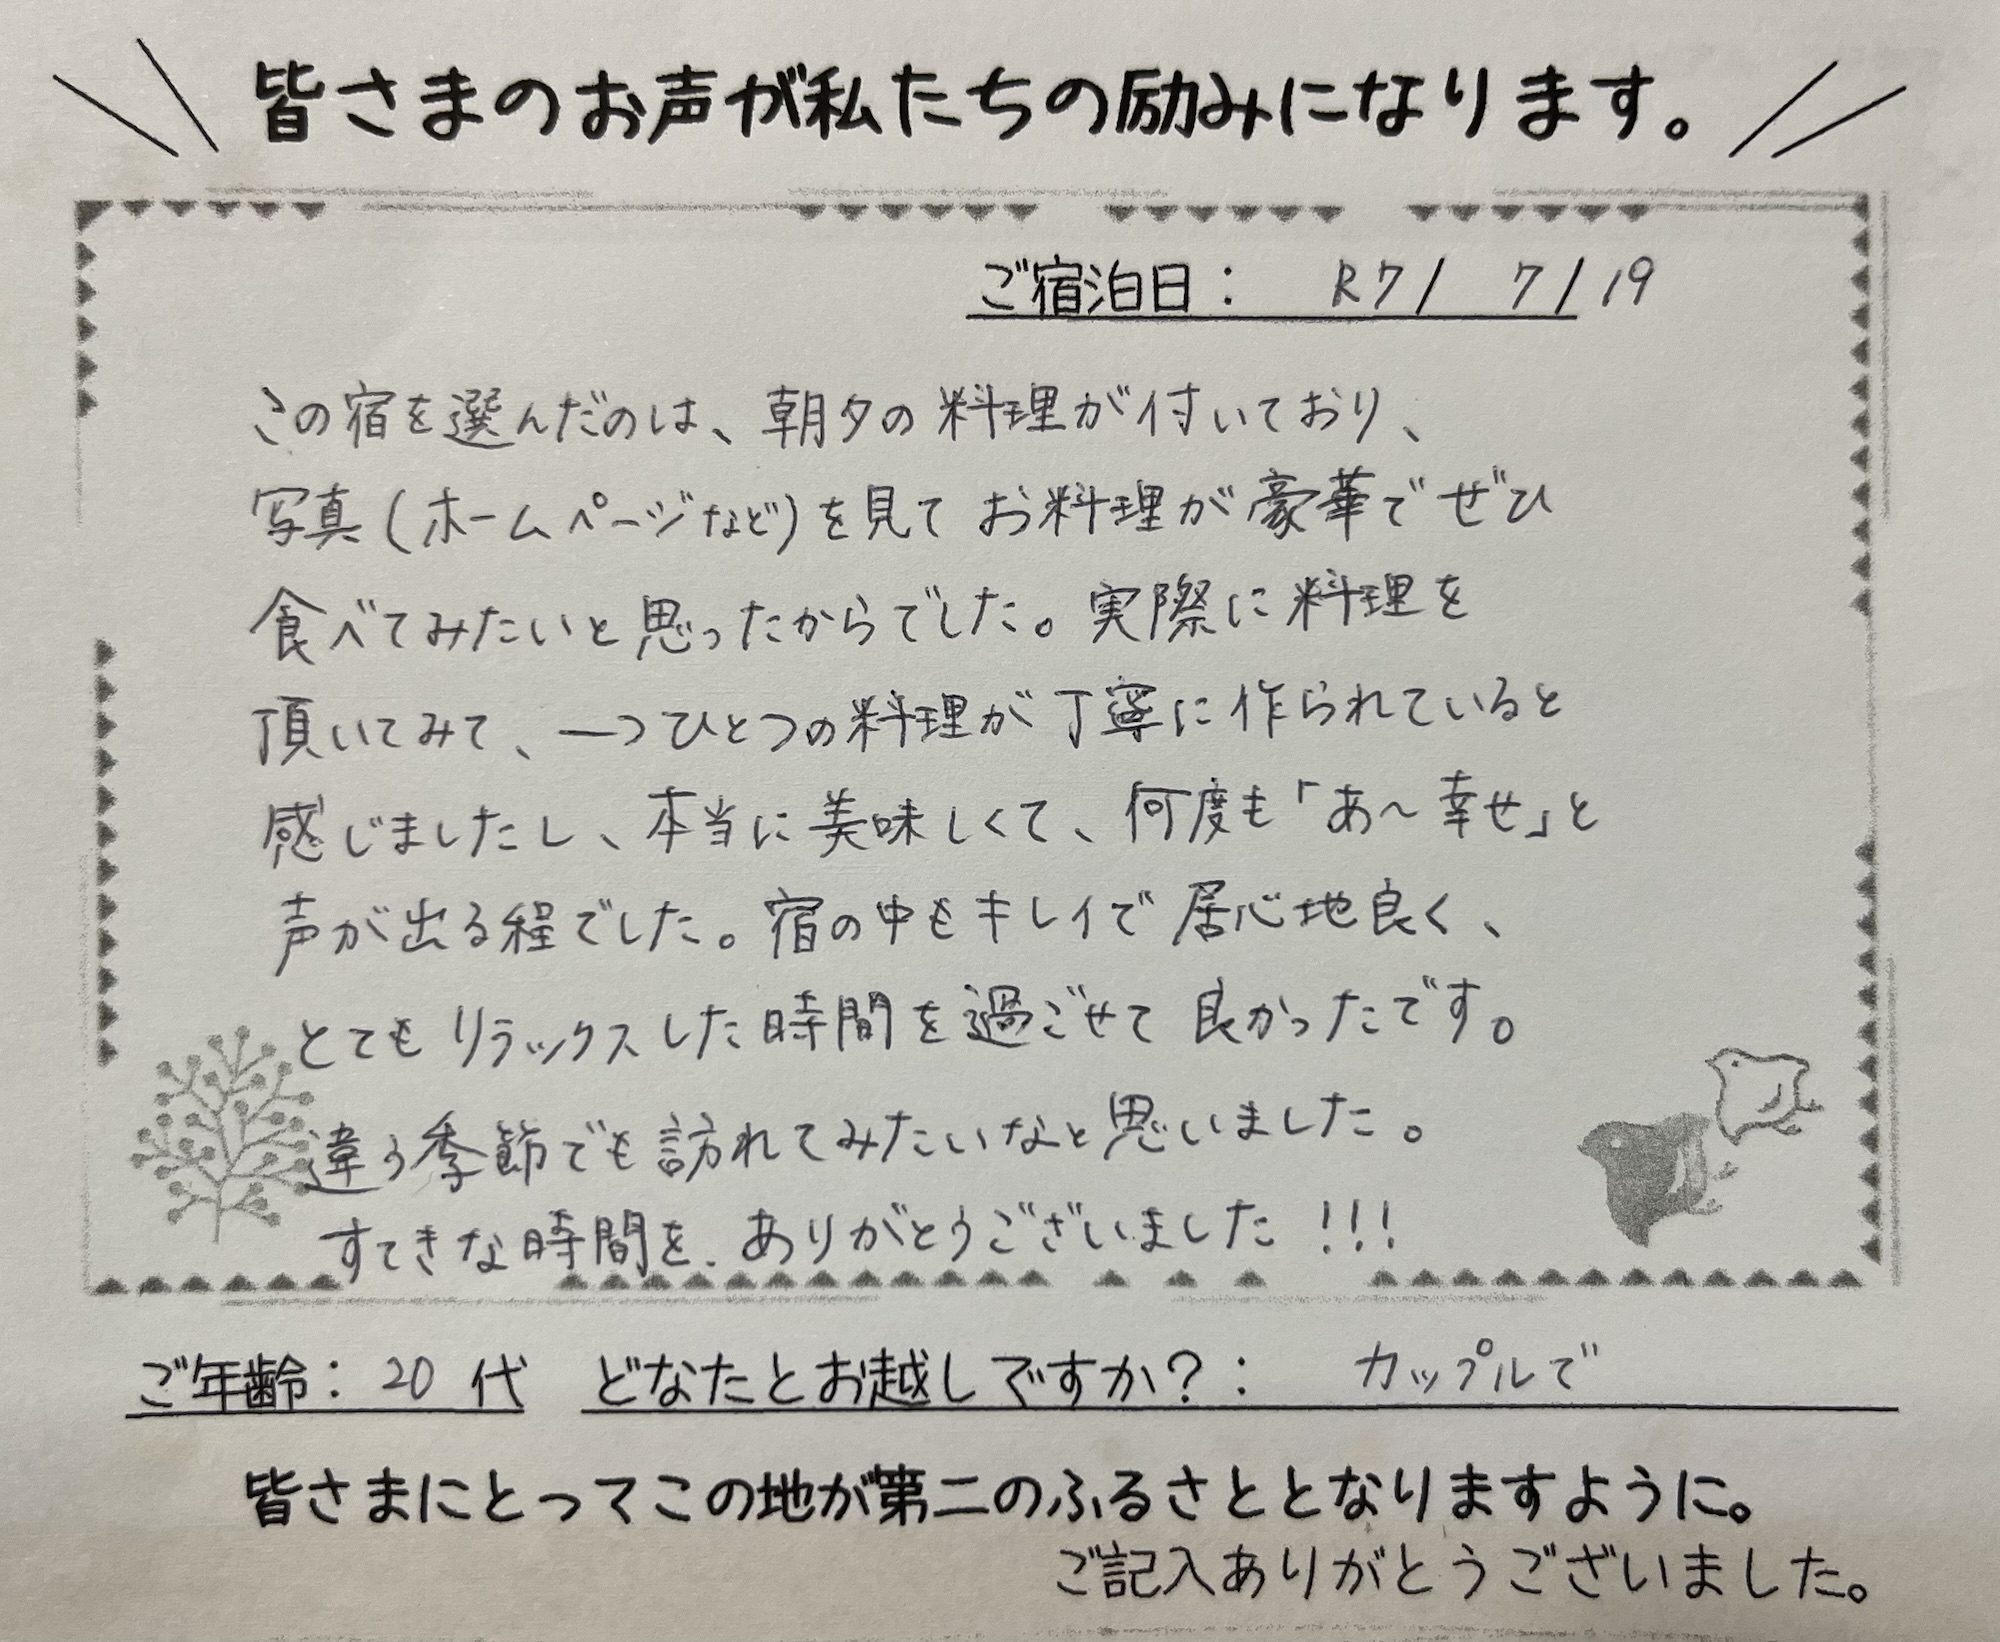 皆さまのお声が私たちの励みになります。
ご宿泊日： R7/ 7/19
この宿を選んだのは、朝夕の料理が付いており、
写真(ホームページなど)を見てお料理が豪華でぜひ
食べてみたいと思ったからでした。実際に料理を
頂いてみて、一つひとつの料理が丁寧に作られていると
感じましたし、本当に美味しくて、何度も「あ〜幸せ」と
声が出る程でした。宿の中もキレイで居心地良く、
とてもリラックスした時間を過ごせて良かったです。
違う季節でも訪れてみたいなと思いました。
すてきな時間を、ありがとうございました!!!
ご年齢：20代 どなたとお越しですか？： カップルで
皆さまにとってこの地が第二のふるさととなりますように。
ご記入ありがとうございました。